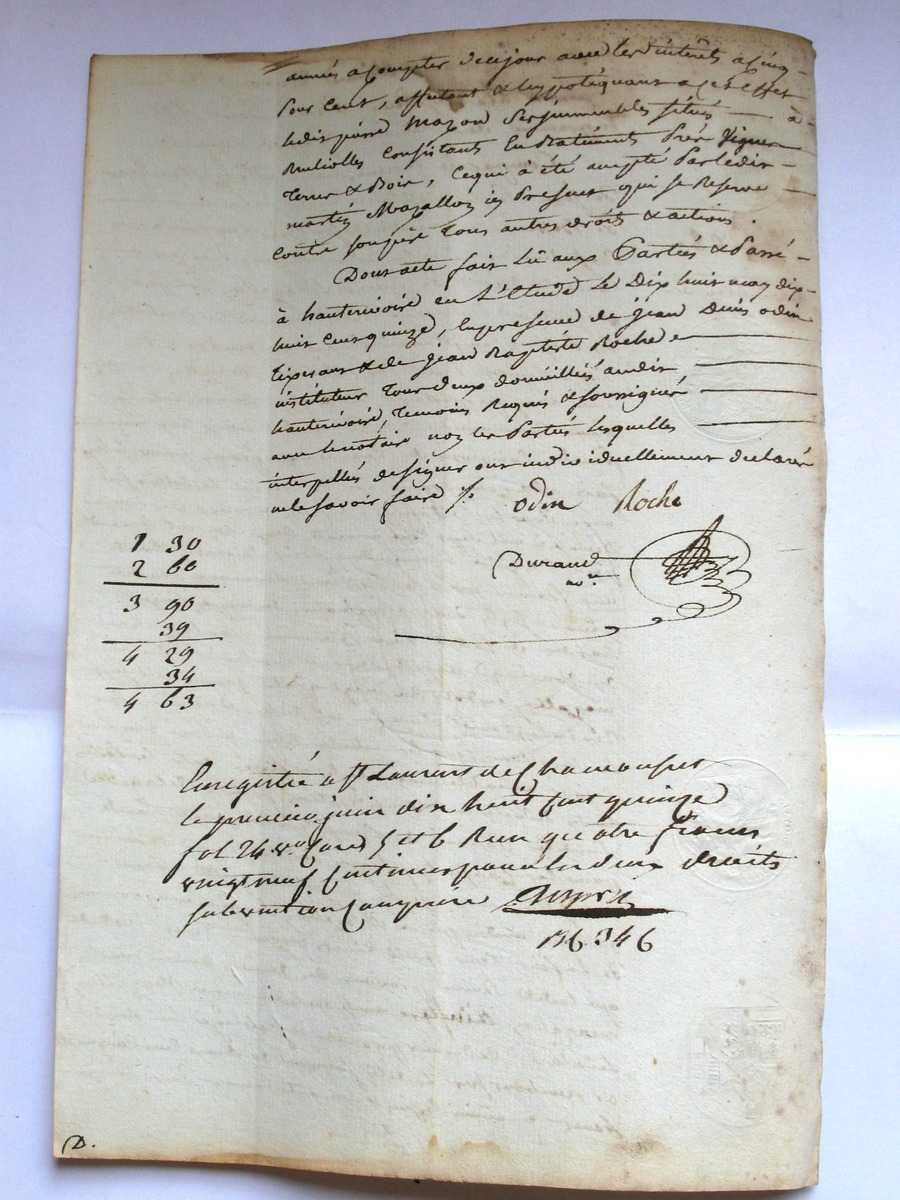 année a Compter de ce jour avec les intérêts a Cinq
Pour Cent, affectant & hypotéquant a cet Effet
ledit pierre Mazon Ses immeubles situés à
Consistants En Batiment Prés Vignes
Terres & Bois, Ce qui à été accepté Par ledit
martin Mazallon ici Present qui se Reserve
Contre son père tous autres droits & actions.
Dont acte fait Lû aux Parties & Passé
à hauterivoire en L'Etude Le Dix huit may dix
huit Cent quinze, En presence de jean Denis odin
Tixerant & de jean Baptiste Roche
instituteur tous deux domiciliés audit
hauterivoire, Temoins Requis & soussignés
avec le notaire non les Parties lesquelles
interpellés de signer ont individuellement declaré
ne le savoir faire
odin Roche
Durand
nore
1 30
2 60
3 90
39
4 29
34
4 63
Enregistré a St Laurent de Chamousset
le premier juin dix huit cent quinze
fol 24 vo Case 5 et 6 Reçu quatre francs
vingt neuf Centimes pour les deux droits
subvention Comprise
136.346
D.